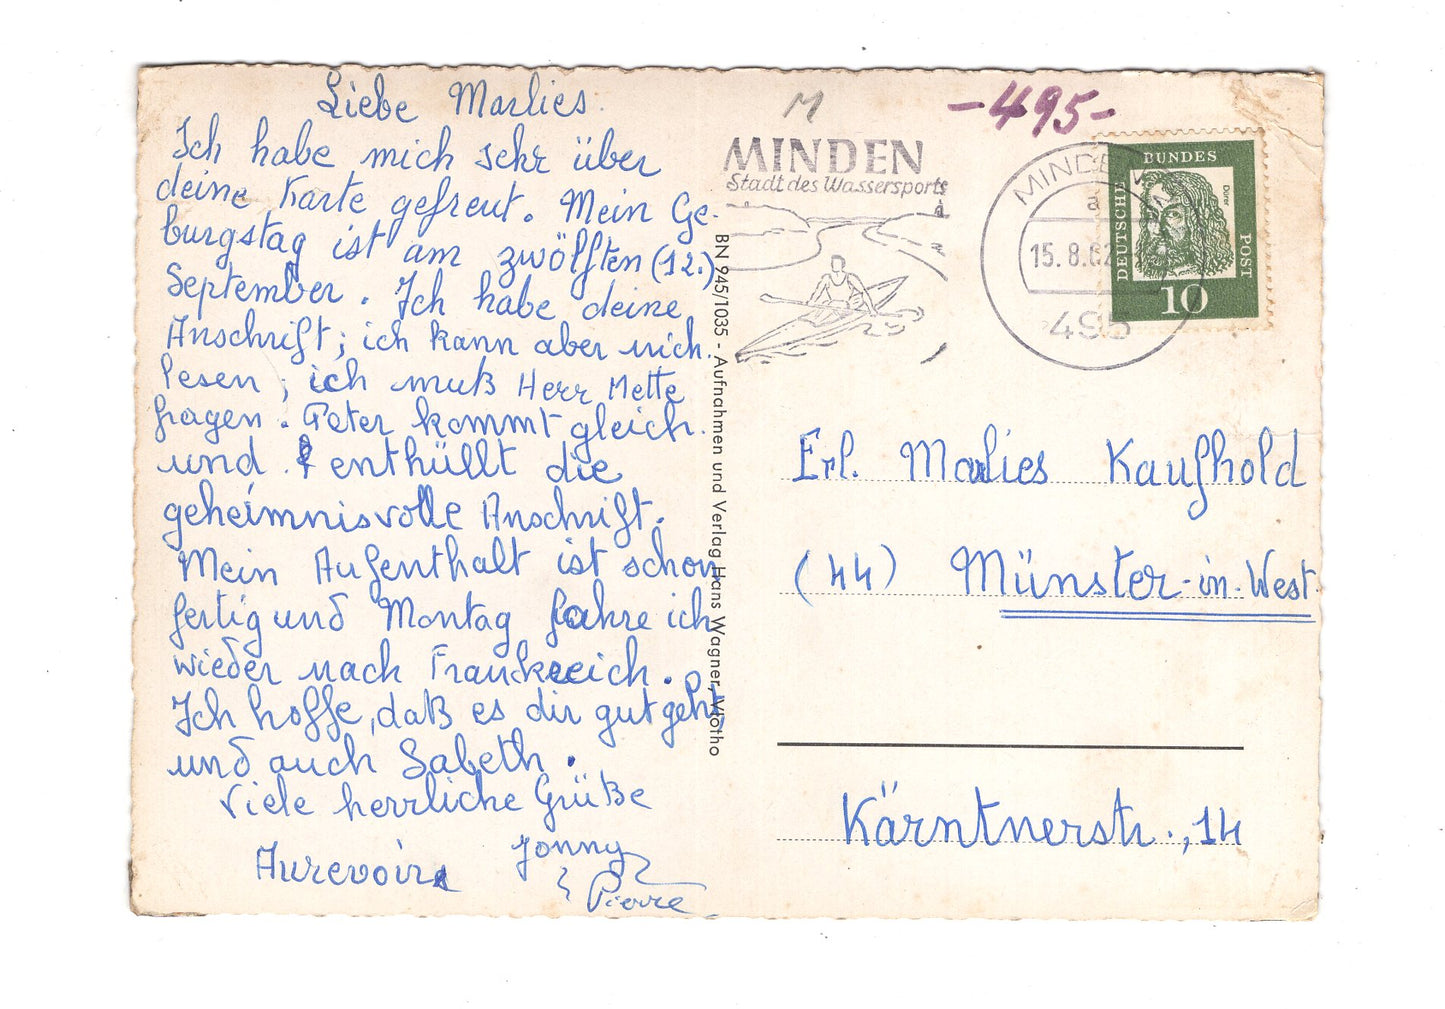 Liebe Marlies.
Ich habe mich sehr über
deine Karte gefreut. Mein Ge-
burgstag ist am zwölften (12.)
September. Ich habe deine
Anschrift; ich kann aber nich.
lesen; ich muß Herr Mette
fragen. Peter kommt gleich.
und enthüllt die
geheimnisvolle Anschrift.
Mein Aufenthalt ist schon
fertig und Montag fahre ich
wieder nach Frankreich.
Ich hoffe, daß es dir gut geht,
und auch Sabeth.
Viele herrliche Grüße
Aurevoir Jonny
Pierre
BN 945/1035 - Aufnahmen und Verlag Hans Wagner, Vlotho
M
-495-
MINDEN
Stadt des Wassersports
MINDEN
a
15.8.62
495
DEUTSCHE
BUNDES
POST
Dürer
10
Frl. Marlies Kaufhold
(44) Münster-in-West.
Kärntnerstr., 14